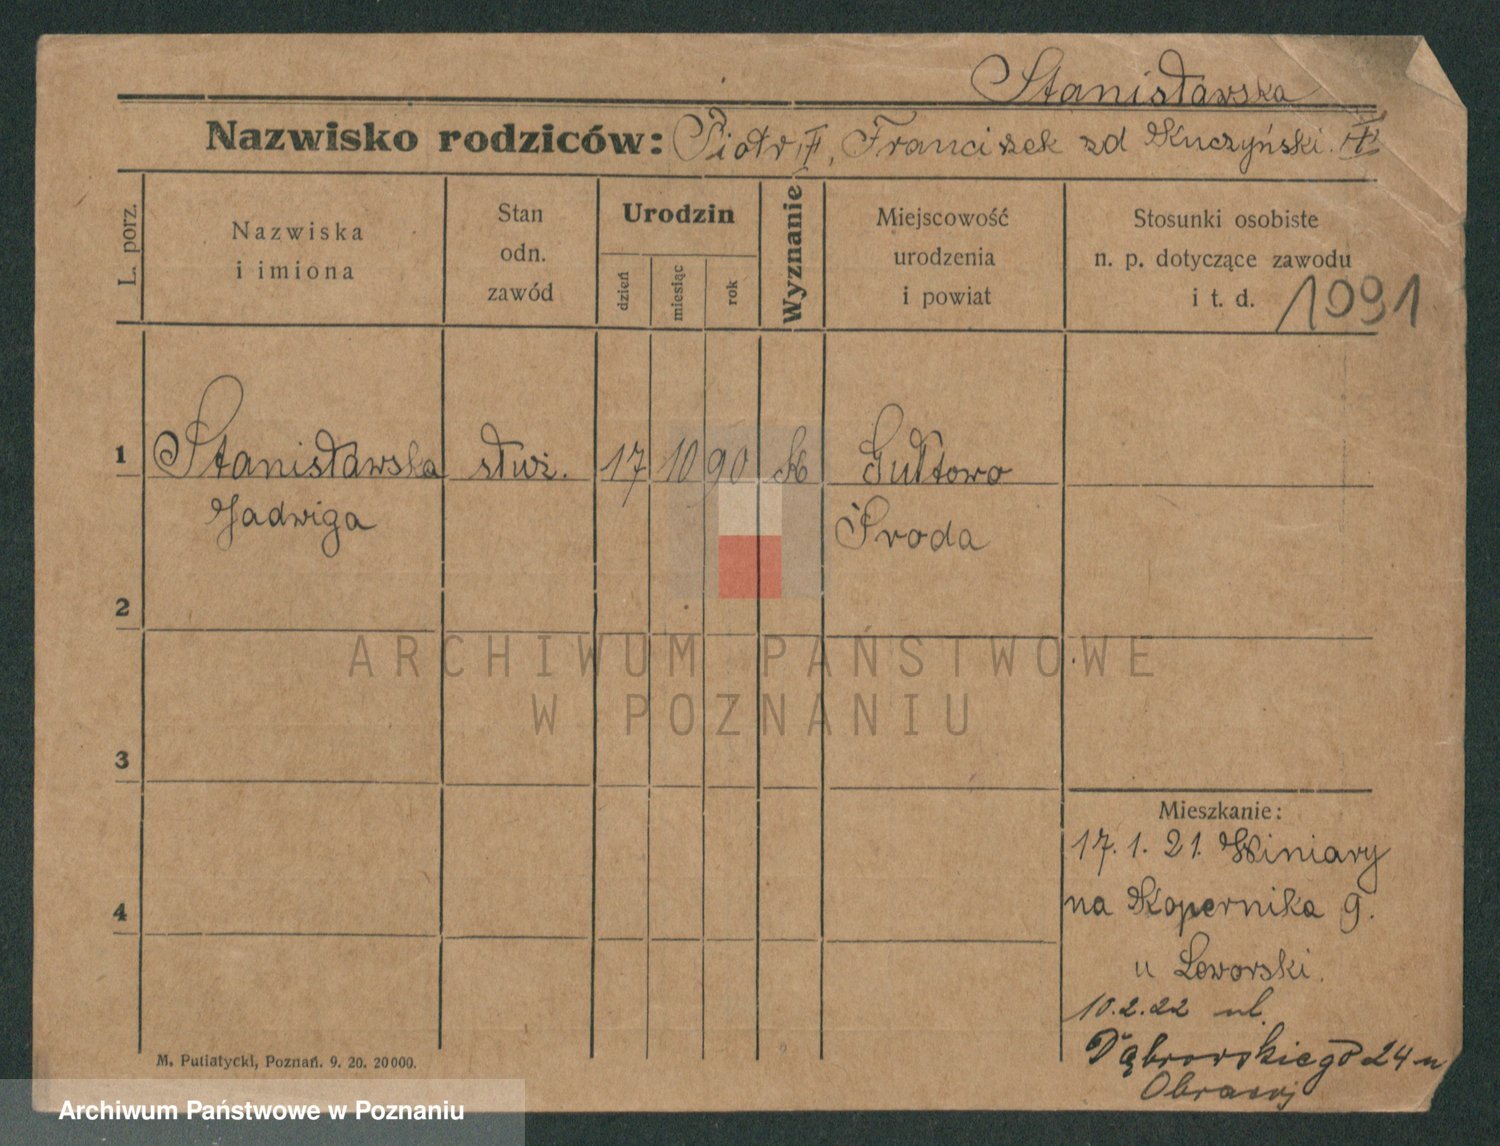 Stanisławska
Nazwisko rodziców: Piotr †, Franciszek zd Kuczyński. †
L. porz.
Nazwiska
i imiona
Stan
odn.
zawód
Urodzin
dzień
miesiąc
rok
Wyznanie
Miejscowość
urodzenia
i powiat
Stosunki osobiste
n. p. dotyczące zawodu
i t. d.
1091
1 Stanisławska służ. 17 10 90 k Gułtowo
Jadwiga Środa
2
3
4
Mieszkanie:
17.1.21. Winiary
na Kopernika 9.
u Leworski.
10.2.22 ul.
Dąbrowskiego 24 u
M. Putiatycki, Poznań. 9. 20. 20000.
ARCHIWUM PAŃSTWOWE
W POZNANIU
Archiwum Państwowe w Poznaniu